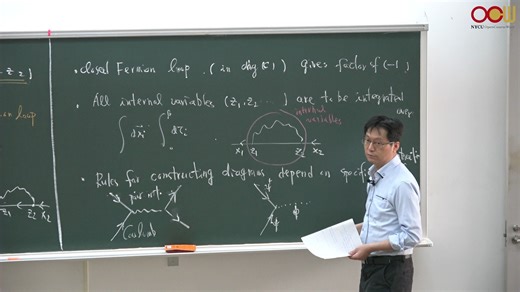 OCW
NYCU
z₂)
loop
z₁ z₂ x₂
• closed Fermion loop, (in diag ) gives factor of (-1)
• All internal variables (z₁, z₂ ⋯ ) are to be integrated over
∫ dx⃗ᵢ ∫ dτᵢ
internal variables
x₁ z₁ z₂ x₂
• Rules for constructing diagrams depend on
pair int.
Coulomb
ϕ